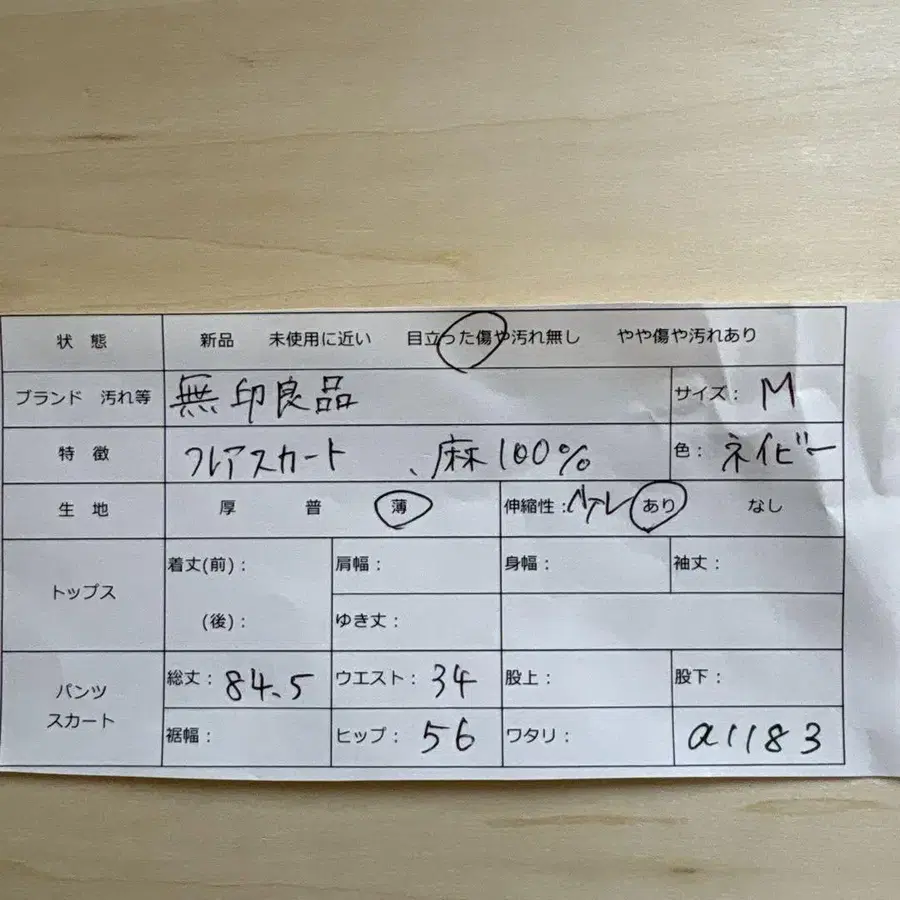 状 態 新品 未使用に近い 目立った傷や汚れ無し やや傷や汚れあり
ブランド 汚れ等 無印良品 サイズ: M
特徴 フレアスカート 、麻100% 色: ネイビー
生地 厚 普 薄 伸縮性: あり なし
トップス 着丈(前): 肩幅: 身幅: 袖丈:
(後): ゆき丈:
パンツ スカート 総丈: 84.5 ウエスト: 34 股上: 股下:
裾幅: ヒップ: 56 ワタリ: a1183